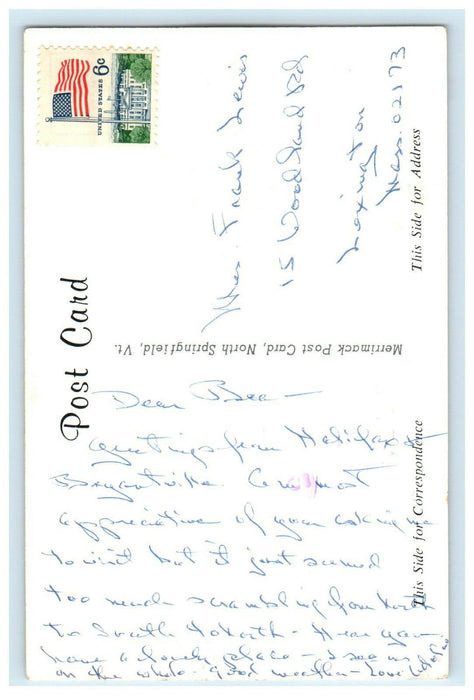 UNITED STATES 6c
Post Card
This Side for Address
Mrs. Frank Lewis
15 Woodland Rd
Lexington
Mass. 02173
Merrimack Post Card, North Springfield, Vt.
This Side for Correspondence
Dear Bea -
Greetings from Halifax &
Bryantville. Am most
appreciative of your asking me
to visit but it just seemed
too much scrambling from North
to South to North - Hear you
have a lovely place -
on the whole - good weather - Love